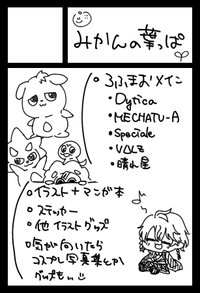 みかんの葉っぱ
ろふまおメイン
・Oytica
・MECHATU-A
・Speciale
・VΔLZ
・晴れ屋
イラスト+マンガ本
ステッカー
他イラストグッズ
気が向いたら
コスプレ写真集とか
グッズも